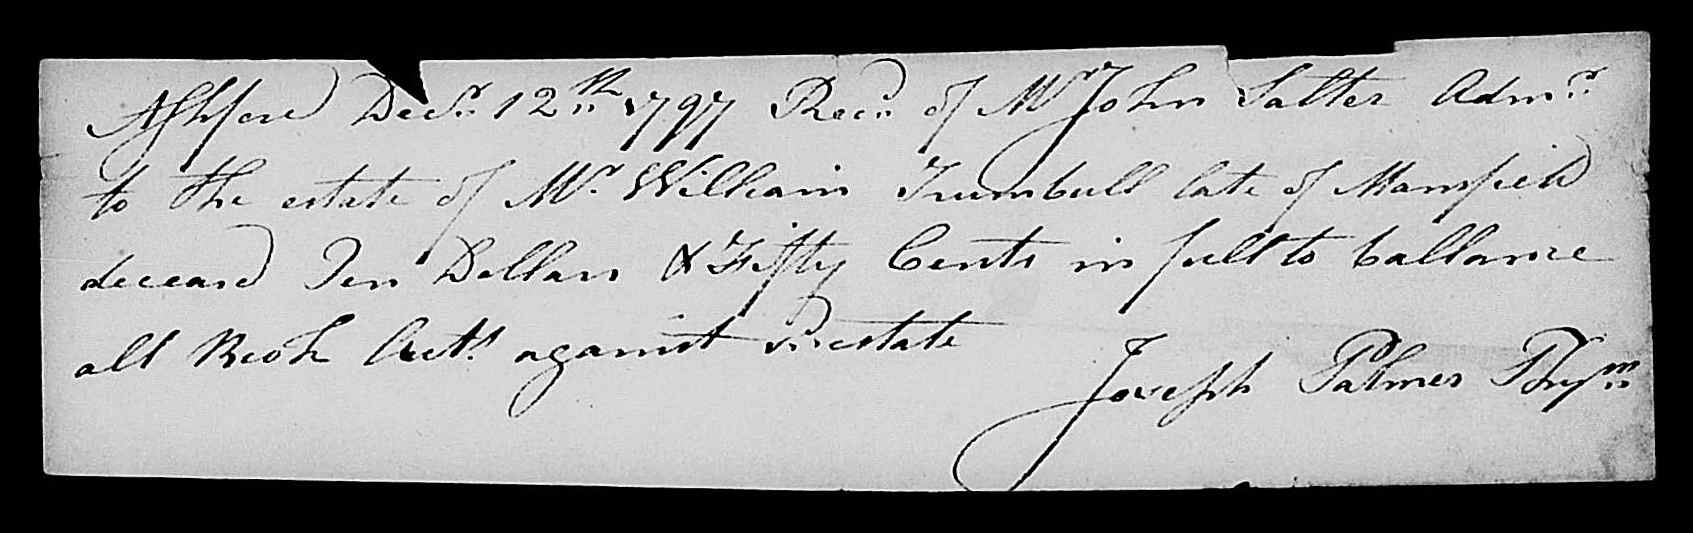 Ashford Decr. 12th 1797 Recd. of Mr John Salter Admr.
to the estate of Mr. William Trumbull late of Mansfield
deceasd Ten Dollars & Fifty Cents in full to ballance
all Book Acts. against sd estate
Joseph Palmer Physn